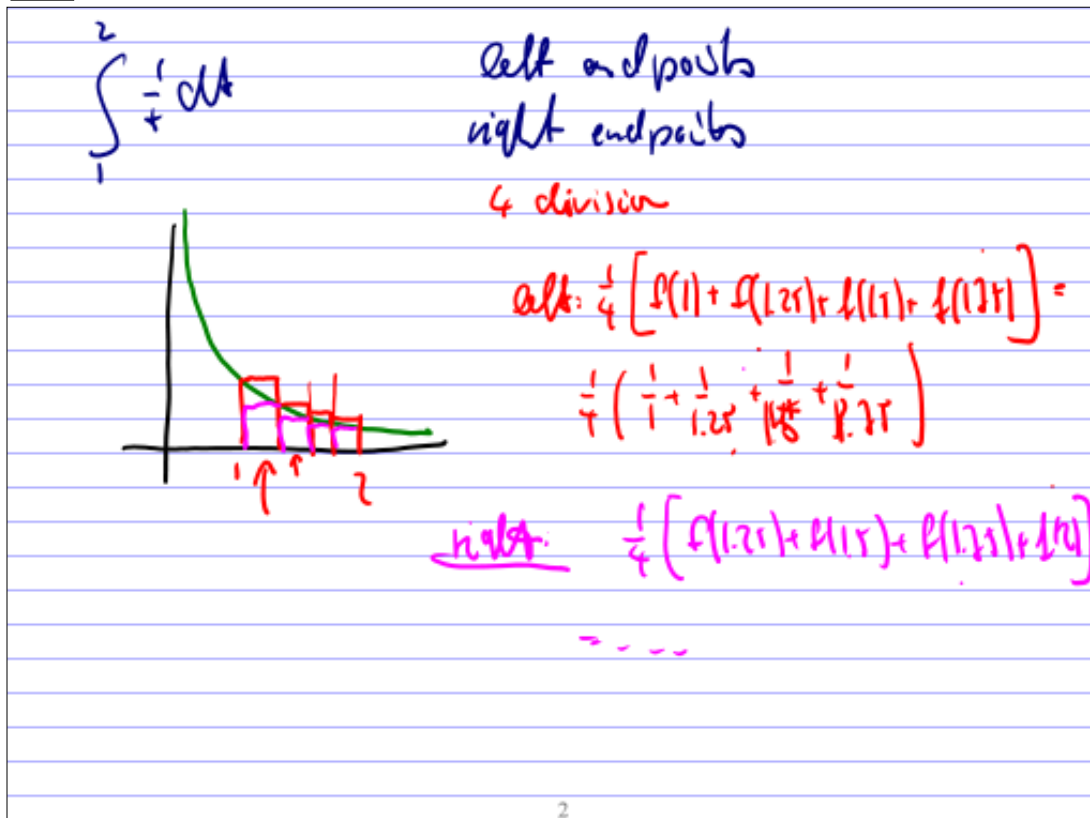 ∫₁² 1/t dt
left endpoints
right endpoints
4 division
left: 1/4 [f(1) + f(1.25) + f(1.5) + f(1.75)] =
1/4 (1/1 + 1/1.25 + 1/1.5 + 1/1.75)
1 2
right: 1/4 [f(1.25) + f(1.5) + f(1.75) + f(2)]
= ...
2